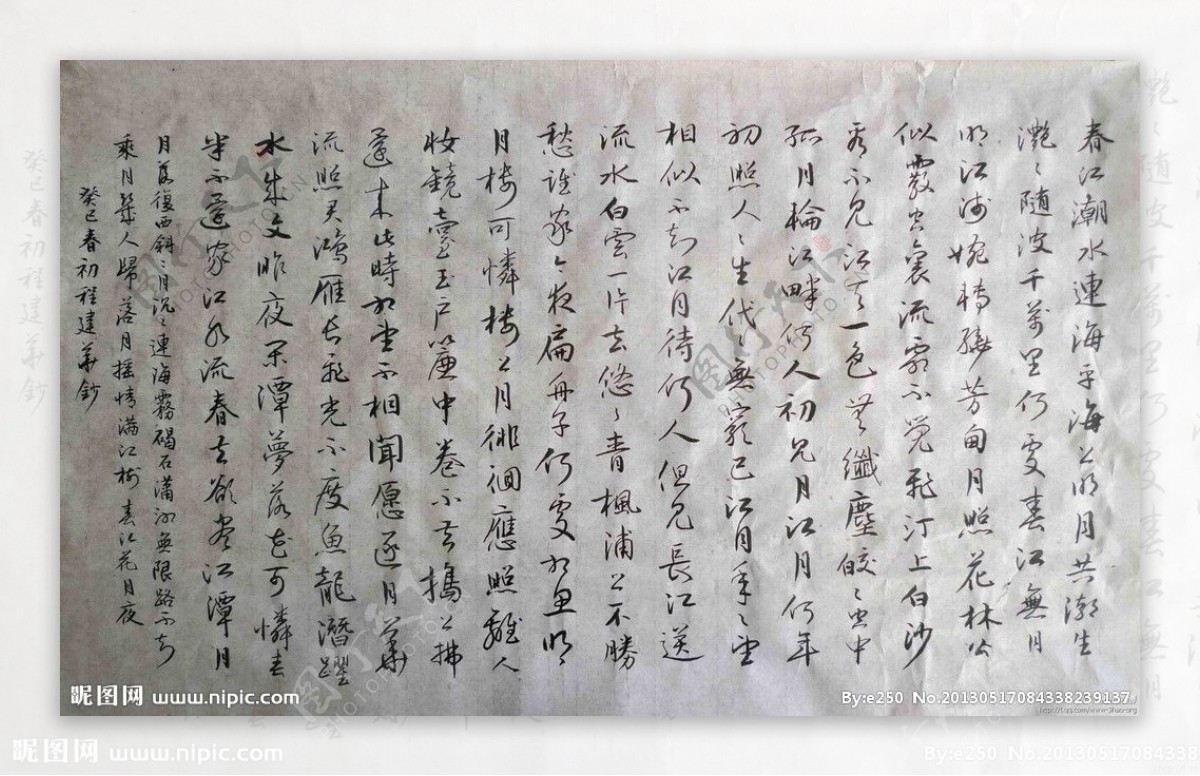 春江潮水連海平海上明月共潮生
灩〻随波千萬里何處春江無月
明江流婉轉繞芳甸月照花林皆
似霰空裏流霜不覺飛汀上白沙
看不見江天一色無纖塵皎〻空中
孤月輪江畔何人初見月江月何年
初照人〻生代〻無窮已江月年〻望
相似不知江月待何人但見長江送
流水白雲一片去悠〻青楓浦上不勝
愁誰家今夜扁舟子何處相思明
月樓可憐樓上月徘徊應照離人
妝鏡臺玉户簾中卷不去搗上拂
還来此時相望不相聞愿逐月華
流照君鴻雁長飛光不度魚龍潛躍
水成文昨夜閑潭夢落花可憐春
半不還家江水流春去欲盡江潭月
月落復西斜〻月沉〻連海霧碣石瀟湘無限路不知
乘月幾人歸落月摇情满江樹 春江花月夜
癸巳春初程建華鈔
昵图网 www.nipic.com
By:e250 No.20130517084338239137
昵图网 www.nipic.com
By:e250 No.20130517084338